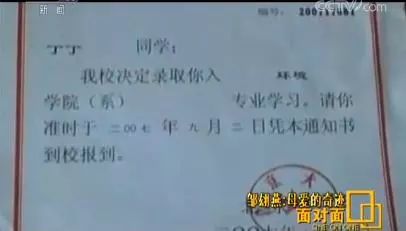 CCTV.com
新闻
编号:
丁丁 同学:
我校决定录取你入 环境
学院(系) 专业学习。请你
准时于 二〇〇七 年 九 月 二 日凭本通知书
到校报到。
邹翃燕:母爱的奇迹
面对面
ONE ON ONE